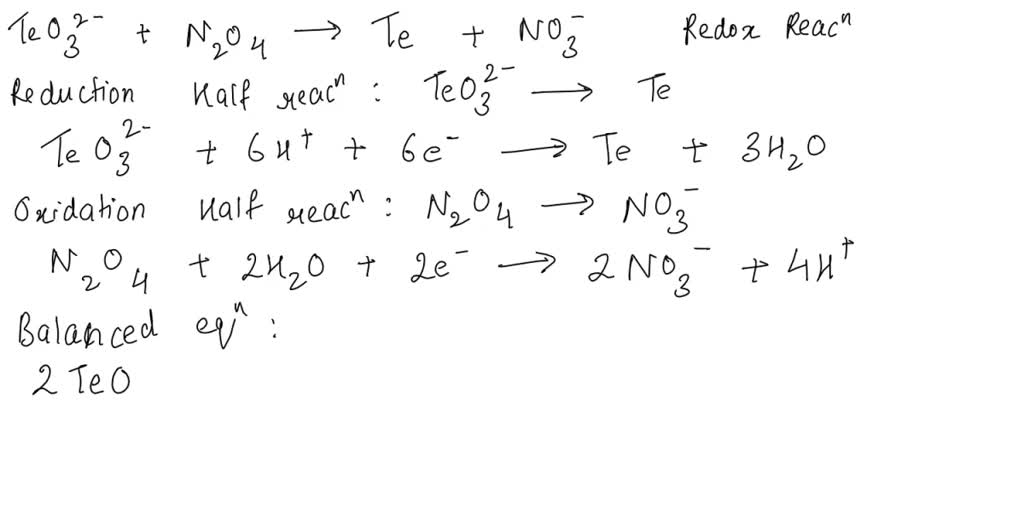 TeO₃²⁻ + N₂O₄ → Te + NO₃⁻ Redox Reacⁿ
Reduction Half reacⁿ : TeO₃²⁻ → Te
TeO₃²⁻ + 6H⁺ + 6e⁻ → Te + 3H₂O
Oxidation Half reacⁿ : N₂O₄ → NO₃⁻
N₂O₄ + 2H₂O + 2e⁻ → 2NO₃⁻ + 4H⁺
Balanced eqⁿ :
2 TeO